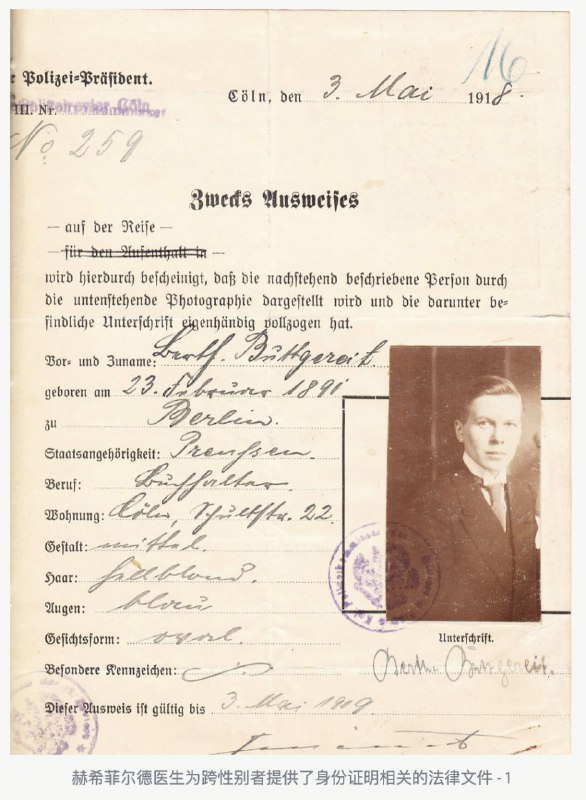 r Polizei=Präsident.
16
Cöln, den 3. Mai 1918.
III. Nr.
No 259
Zwecks Ausweises
— auf der Reise —
— für den Aufenthalt in —
wird hierdurch bescheinigt, daß die nachstehend beschriebene Person durch
die untenstehende Photographie dargestellt wird und die darunter be=
findliche Unterschrift eigenhändig vollzogen hat.
Vor- und Zuname: Berth. Buttgereit.
geboren am 23. Februar 1891
zu Berlin.
Staatsangehörigkeit: Preussen.
Beruf: Buchhalter
Wohnung: Cöln, Schultstr. 22.
Gestalt: mittel.
Haar: hellblond.
Augen: blau
Gesichtsform: oval.
Unterschrift.
Besondere Kennzeichen:
Berth. Buttgereit.
Dieser Ausweis ist gültig bis 3. Mai 1919.
赫希菲尔德医生为跨性别者提供了身份证明相关的法律文件 - 1